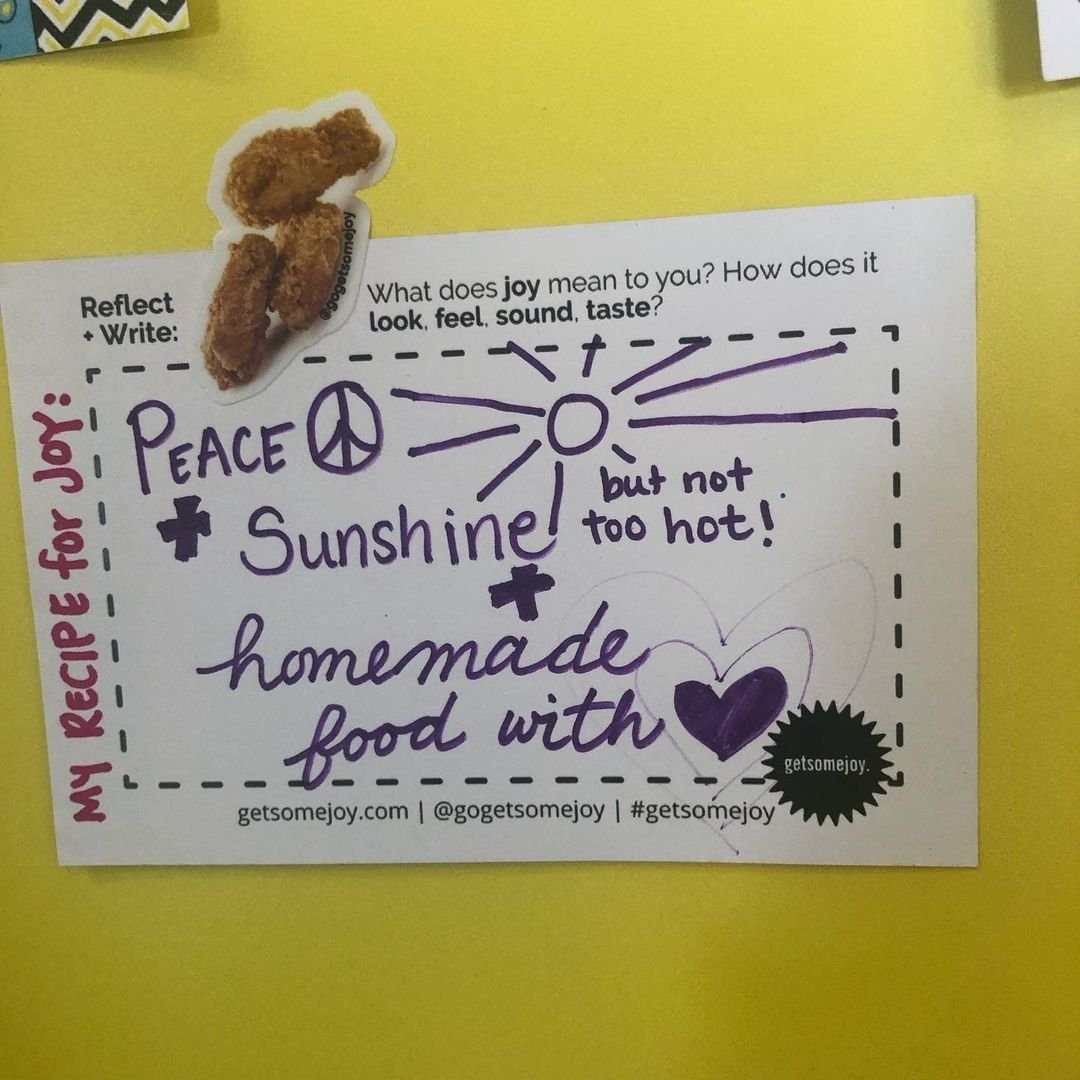 Reflect
+ Write:
@gogetsomejoy
What does joy mean to you? How does it
look, feel, sound, taste?
MY RECIPE for JOY:
PEACE
+ Sunshine!
but not
too hot!
+
homemade
food with
getsomejoy.
getsomejoy.com | @gogetsomejoy | #getsomejoy